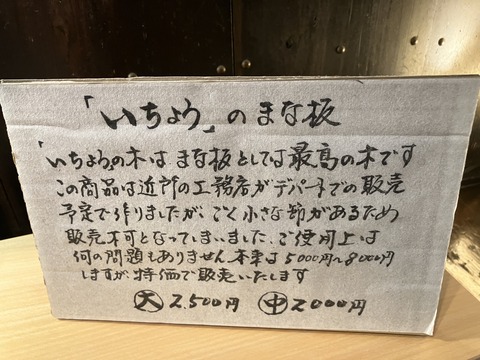 「いちょう」のまな板
「いちょうの木はまな板としては最高の木です
この商品は近所の工務店がデパートでの販売
予定で作りましたが、ごく小さな節があるため
販売不可となってしまいました、ご使用上は
何の問題もありません本来は5000円〜8000円
しますが、特価で販売いたします
大 2.500円 中 2000円